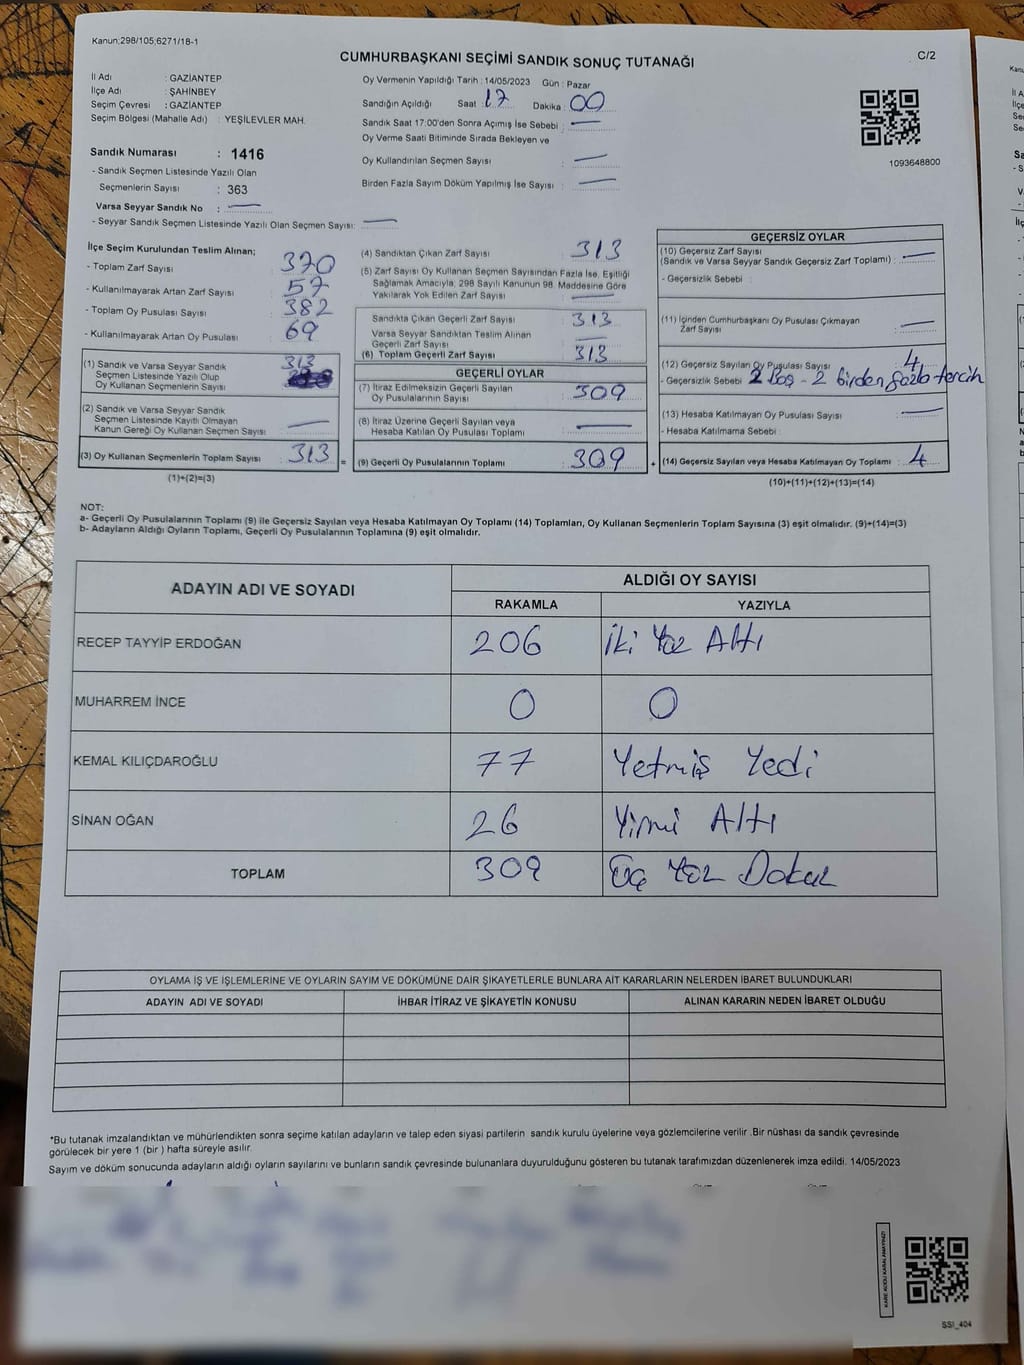 Kanun;298/105;6271/18-1
CUMHURBAŞKANI SEÇİMİ SANDIK SONUÇ TUTANAĞI
C/2
İl Adı : GAZİANTEP
İlçe Adı : ŞAHİNBEY
Seçim Çevresi : GAZİANTEP
Seçim Bölgesi (Mahalle Adı) : YEŞİLEVLER MAH.
Sandık Numarası : 1416
- Sandık Seçmen Listesinde Yazılı Olan
Seçmenlerin Sayısı : 363
Varsa Seyyar Sandık No : —
- Seyyar Sandık Seçmen Listesinde Yazılı Olan Seçmen Sayısı: —
Oy Vermenin Yapıldığı Tarih : 14/05/2023 Gün : Pazar
Sandığın Açıldığı Saat : 17 Dakika : 00
Sandık Saat 17:00'den Sonra Açımış İse Sebebi : —
Oy Verme Saati Bitiminde Sırada Bekleyen ve
Oy Kullandırılan Seçmen Sayısı : —
Birden Fazla Sayım Döküm Yapılmış İse Sayısı : —
1093648800
İlçe Seçim Kurulundan Teslim Alınan;
- Toplam Zarf Sayısı : 370
- Kullanılmayarak Artan Zarf Sayısı : 57
- Toplam Oy Pusulası Sayısı : 382
- Kullanılmayarak Artan Oy Pusulası : 69
(1) Sandık ve Varsa Seyyar Sandık
Seçmen Listesinde Yazılı Olup
Oy Kullanan Seçmenlerin Sayısı : 313
(2) Sandık ve Varsa Seyyar Sandık
Seçmen Listesinde Kayıtlı Olmayan
Kanun Gereği Oy Kullanan Seçmen Sayısı : —
(3) Oy Kullanan Seçmenlerin Toplam Sayısı : 313 =
(1)+(2)=(3)
(4) Sandıktan Çıkan Zarf Sayısı : 313
(5) Zarf Sayısı Oy Kullanan Seçmen Sayısından Fazla İse, Eşitliği
Sağlamak Amacıyla; 298 Sayılı Kanunun 98. Maddesine Göre
Yakılarak Yok Edilen Zarf Sayısı : —
Sandıkta Çıkan Geçerli Zarf Sayısı : 313
Varsa Seyyar Sandıktan Teslim Alınan
Geçerli Zarf Sayısı : —
(6) Toplam Geçerli Zarf Sayısı : 313
GEÇERLİ OYLAR
(7) İtiraz Edilmeksizin Geçerli Sayılan
Oy Pusulasının Sayısı : 309
(8) İtiraz Üzerine Geçerli Sayılan veya
Hesaba Katılan Oy Pusulası Toplamı : —
(9) Geçerli Oy Pusulalarının Toplamı : 309 +
GEÇERSİZ OYLAR
(10) Geçersiz Zarf Sayısı
(Sandık ve Varsa Seyyar Sandık Geçersiz Zarf Toplamı) : —
- Geçersizlik Sebebi :
(11) İçinden Cumhurbaşkanı Oy Pusulası Çıkmayan
Zarf Sayısı : —
(12) Geçersiz Sayılan Oy Pusulası Sayısı : 4
- Geçersizlik Sebebi 2 Boş - 2 birden fazla tercih
(13) Hesaba Katılmayan Oy Pusulası Sayısı : —
- Hesaba Katılmama Sebebi :
(14) Geçersiz Sayılan veya Hesaba Katılmayan Oy Toplamı : 4
(10)+(11)+(12)+(13)=(14)
NOT:
a- Geçerli Oy Pusulalarının Toplamı (9) ile Geçersiz Sayılan veya Hesaba Katılmayan Oy Toplamı (14) Toplamları, Oy Kullanan Seçmenlerin Toplam Sayısına (3) eşit olmalıdır. (9)+(14)=(3)
b- Adayların Aldığı Oyların Toplamı, Geçerli Oy Pusulalarının Toplamına (9) eşit olmalıdır.
ADAYIN ADI VE SOYADI
ALDIĞI OY SAYISI
RAKAMLA YAZIYLA
RECEP TAYYİP ERDOĞAN 206 İki Yüz Altı
MUHARREM İNCE 0 0
KEMAL KILIÇDAROĞLU 77 Yetmiş Yedi
SİNAN OĞAN 26 Yirmi Altı
TOPLAM 309 Üç Yüz Dokuz
OYLAMA İŞ VE İŞLEMLERİNE VE OYLARIN SAYIM VE DÖKÜMÜNE DAİR ŞİKAYETLERLE BUNLARA AİT KARARLARIN NELERDEN İBARET BULUNDUKLARI
ADAYIN ADI VE SOYADI İHBAR İTİRAZ VE ŞİKAYETİN KONUSU ALINAN KARARIN NEDEN İBARET OLDUĞU
*Bu tutanak imzalandıktan ve mühürlendikten sonra seçime katılan adayların ve talep eden siyasi partilerin sandık kurulu üyelerine veya gözlemcilerine verilir .Bir nüshası da sandık çevresinde
görülecek bir yere 1 (bir ) hafta süreyle asılır.
Sayım ve döküm sonucunda adayların aldığı oyların sayılarını ve bunların sandık çevresinde bulunanlara duyurulduğunu gösteren bu tutanak tarafımızdan düzenlenerek imza edildi. 14/05/2023
KARE KODU KARALAMAYINIZ!
SSI_404